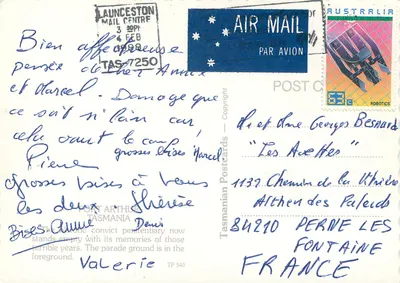 LAUNCESTON
MAIL CENTRE
3 PM
4 FEB
1988
TAS-7250
AIR MAIL
PAR AVION
AUSTRALIA
ROBOTICS
POST C
Bien affectueuse
pensée de chez Annie
et Marcel. Domage que
ce soit si loin car
cela vaut le
Pierre
grosses bises Marcel
grosses bises à vous
les deux Thérèse
Bises Annie Denis
Valérie
PORT ARTHUR
TASMANIA
convict penitentiary now
stands empty with its memories of those
terrible years. The parade ground is in the
foreground.
TP 540
Tasmanian Postcards - Copyright
Mr et Mme Georges Besnard
"Les
1132 Chemin de la
Althen des Paluds
84210 PERNE LES
FONTAINE
FRANCE